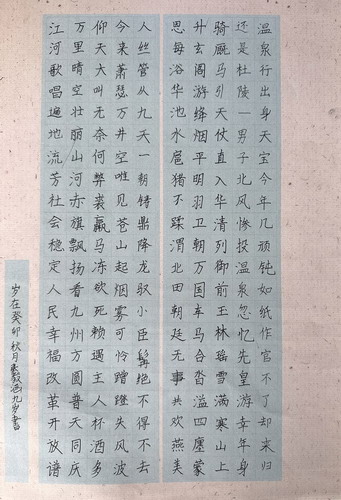 温泉行出身天宝今年几顽钝如纸作官不了却来归
还是杜陵一男子北风惨投温泉忽忆先皇游幸年身
骑厩马引天仗直入华清列御前玉林瑶雪满寒山上
升玄阁游绛烟平明羽卫朝万国车马合沓溢四廛蒙
恩每浴华池水扈猎不蹂渭北田朝廷无事共欢燕美
人丝管从九天一朝铸鼎降龙驭小臣髯绝不得不去
今来萧瑟万井空唯见苍山起烟雾可怜蹭蹬失风波
仰天大叫无奈何弊裘羸马冻欲死赖遇主人杯酒多
万里晴空壮丽山河赤旗飘扬看九州方圆普天同庆
江河歌唱遍地流芳社会稳定人民幸福改革开放谱
岁在癸卯秋月九岁书